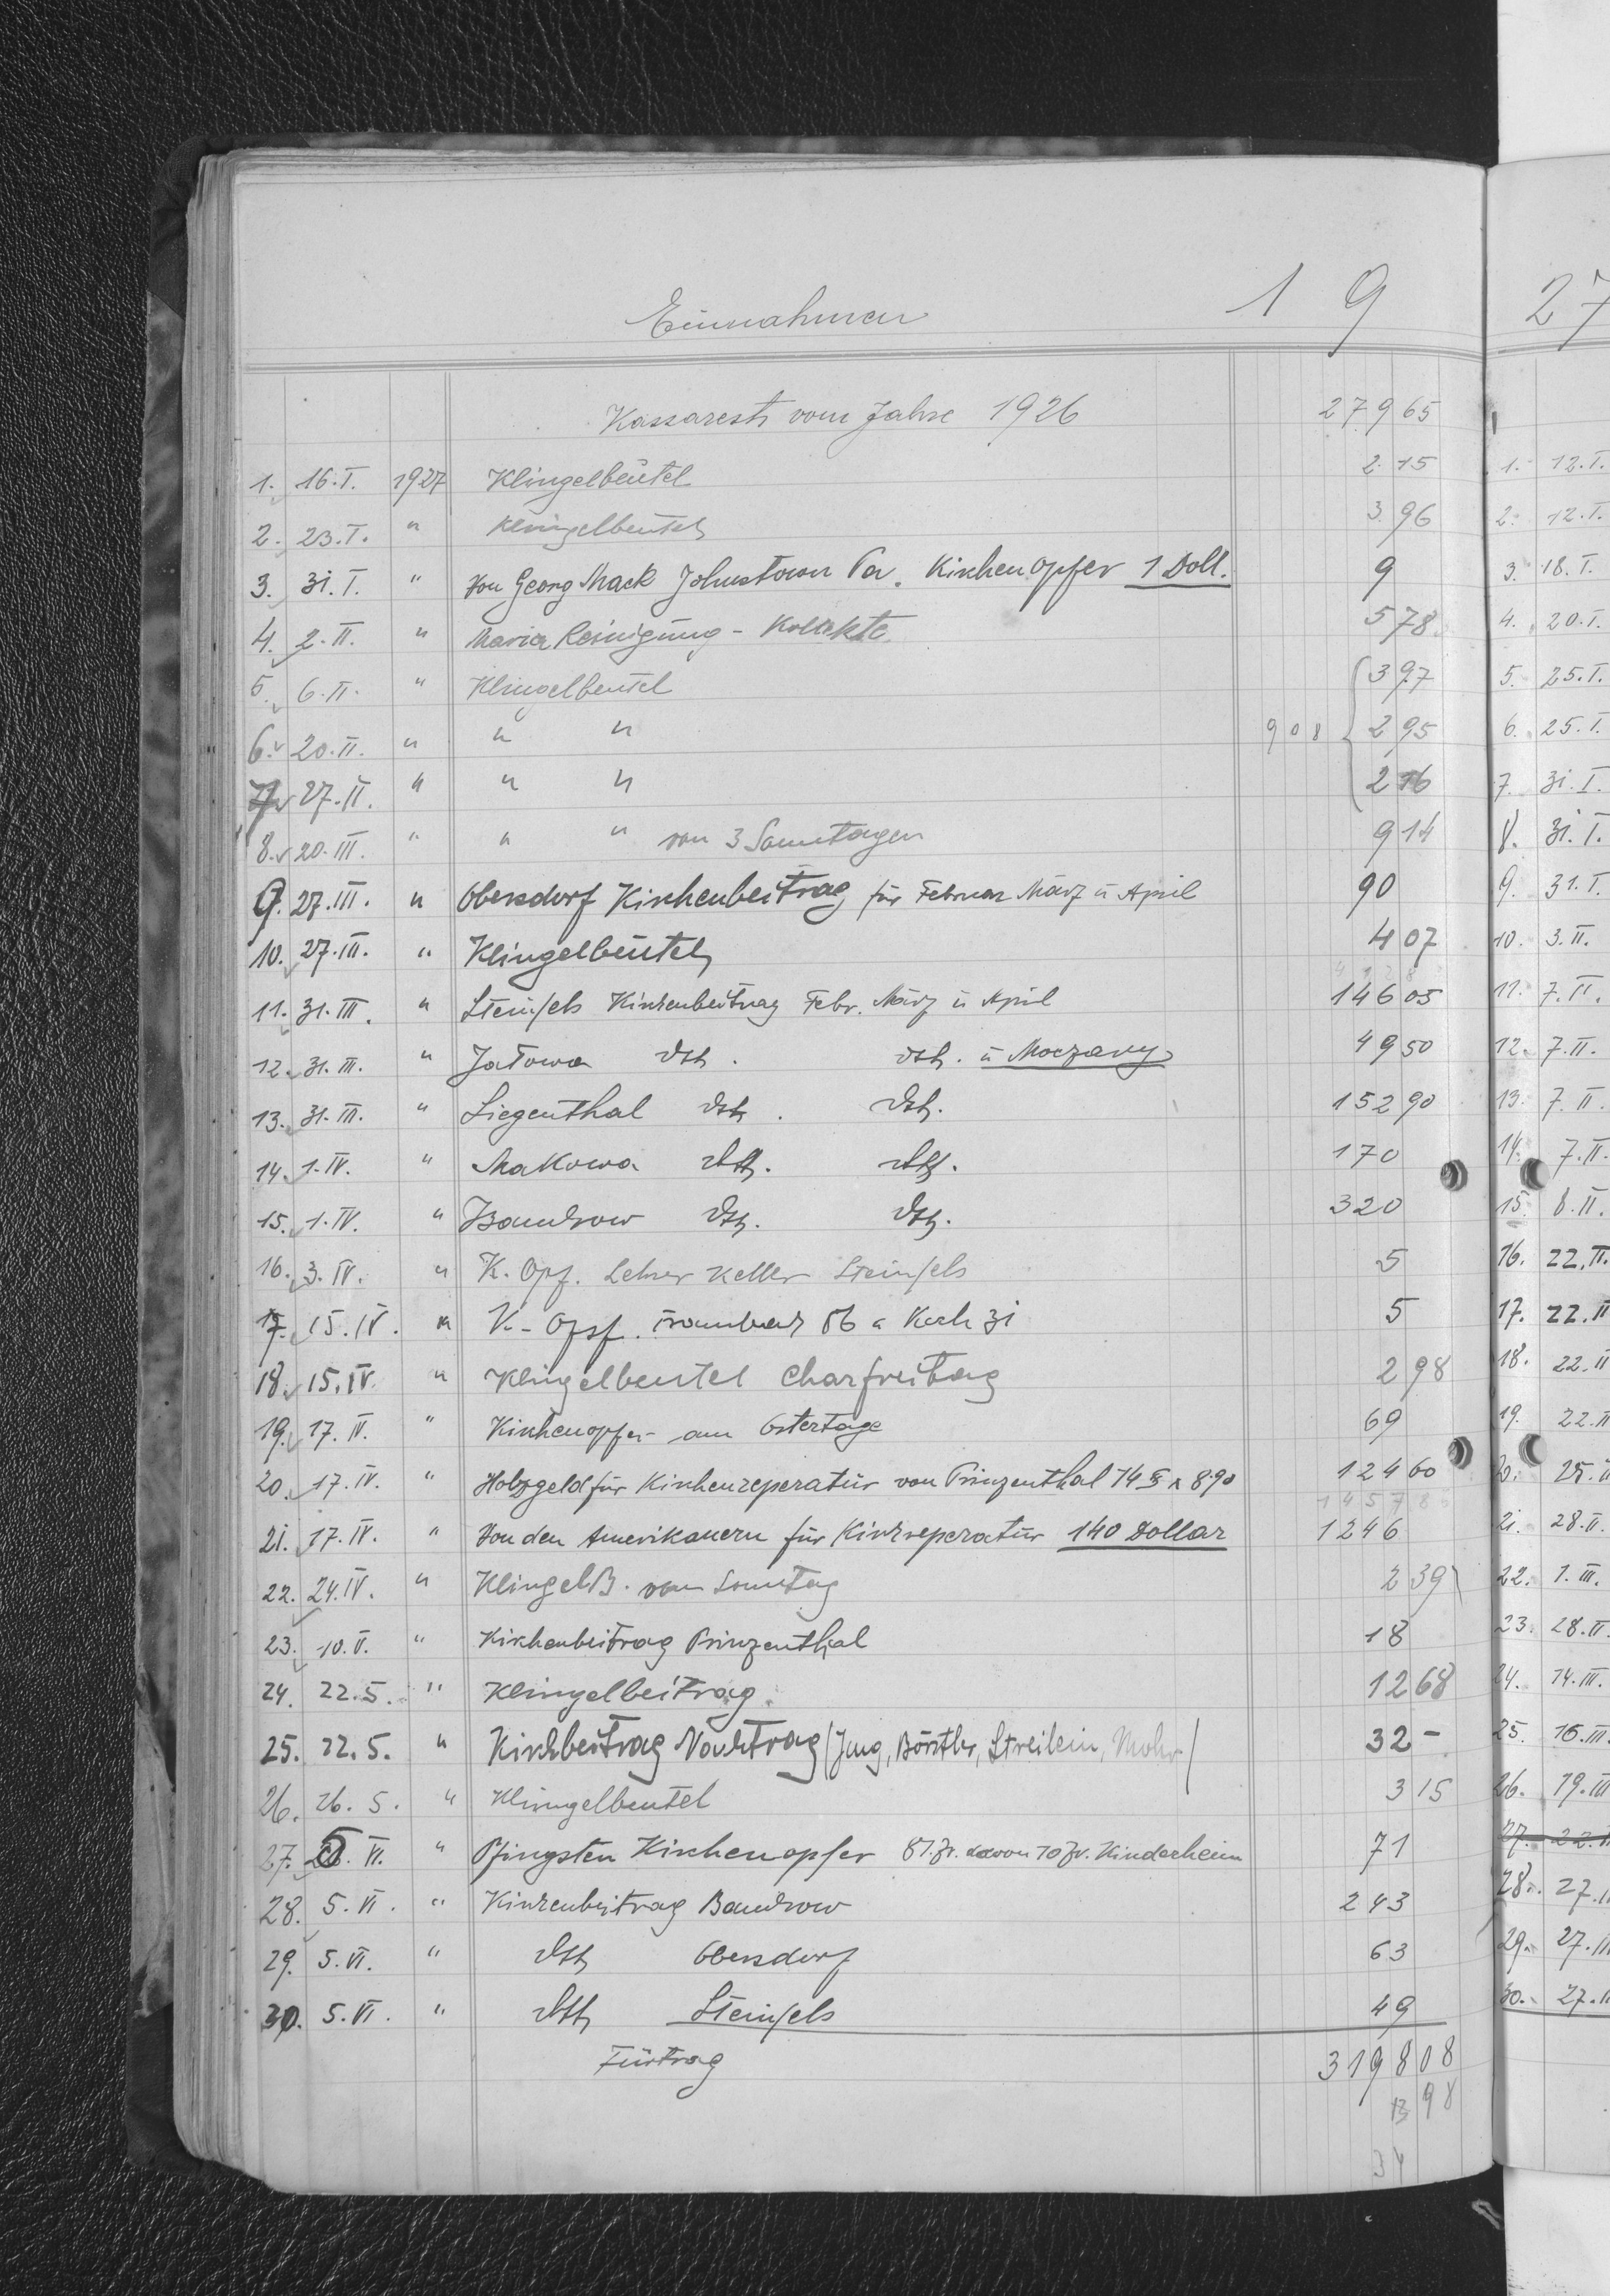 Einnahmen 1 9
Kassarest vom Jahre 1926 279 65
1. 16. I. 1927 Klingelbeutel 2 15
2. 23. I. " Klingelbeutel 3 96
3. 31. I. " Von Georg Mack Johnstown Pa. Kirchenopfer 1 Doll. 9
4. 2. II. " Maria Reinigung - Kollekte 5 78
5. 6. II. " Klingelbeutel 3 97
6. 20. II. " " " 908 2 95
7. 27. II. " " " 2 16
8. 20. III. " " " von 3 Sonntagen 9 14
9. 27. III. " Obersdorf Kirchenbeitrag für Februar März u April 90
10. 27. III. " Klingelbeutel 4 07
11. 31. III. " Steinfels Kirchenbeitrag Febr. März u April 146 05
12. 31. III. " Jatowa dtt. dtt. u Moczary 49 50
13. 31. III. " Siegenthal dtt. dtt. 152 90
14. 1. IV. " Makowa dtt. dtt. 170
15. 1. IV. " Bandrow dtt. dtt. 320
16. 3. IV. " K. Opf. Lehrer Keller Steinfels 5
17. 15. IV. " K. Opf. 86 Koch 31 5
18. 15. IV. " Klingelbeutel Charfreitag 2 98
19. 17. IV. " Kirchenopfer am Ostertage 69
20. 17. IV. " Holzgeld für Kirchenreperatur von Prinzenthal 14 8·90 124 60
21. 17. IV. " Von den Amerikanern für Kirchreperatur 140 Dollar 1246
22. 24. IV. " KlingelB. vom Sonntag 2 39
23. 10. V. " Kirchenbeitrag Prinzenthal 18
24. 22. 5. " Klingelbeitrag 12 68
25. 22. 5. " Kirchbeitrag Nachtrag (Jung, Börstler, Streilein, Mohr) 32 -
26. 26. 5. " Klingelbeutel 3 15
27. 5. VI. " Pfingsten Kirchenopfer 81. Zr. davon 10 Zr. Kinderheim 71
28. 5. VI. " Kirchenbeitrag Bandrow 243
29. 5. VI. " dtt Obersdorf 63
30. 5. VI. " dtt Steinfels 49
Fürtrag 3198 08
98
34
27
1. 12. I.
2. 12. I.
3. 18. I.
4. 20. I.
5. 25. I.
6. 25. I.
7. 31. I.
8. 31. I.
9. 31. I.
10. 3. II.
11. 7. II.
12. 7. II.
13. 7. II.
14. 7. II.
15. 8. II.
16. 22. II.
17. 22. II
18. 22. II
19. 22. II
20. 25. II
21. 28. II.
22. 1. III.
23. 28. II.
24. 14. III.
25. 16. III.
26. 19. III
27. 22.
28. 27.
29. 27. III
30. 27.